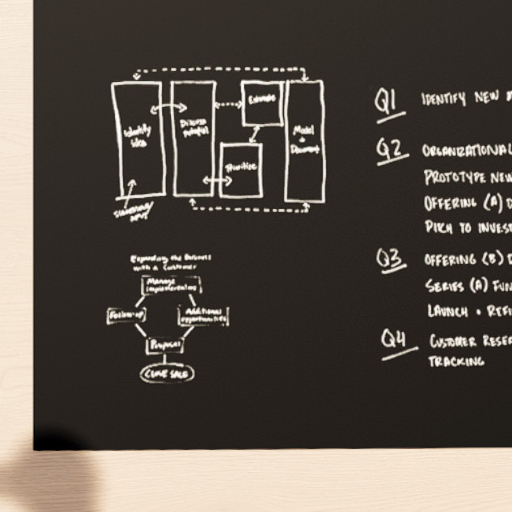 Identify
Idea
Discuss
Potential
Estimate
Prioritize
Model
+
Document
Expanding the Business
with a Customer
Manage
implementation
Follow-up
Additional
opportunities
Proposal
CLOSE SALE
Q1 IDENTIFY NEW
Q2 ORGANIZATIONAL
PROTOTYPE NEW
OFFERING (A)
PICH TO INVES
Q3 OFFERING (B)
SERIES (A) FUN
LAUNCH + REFI
Q4 CUSTOMER RESE
TRACKING